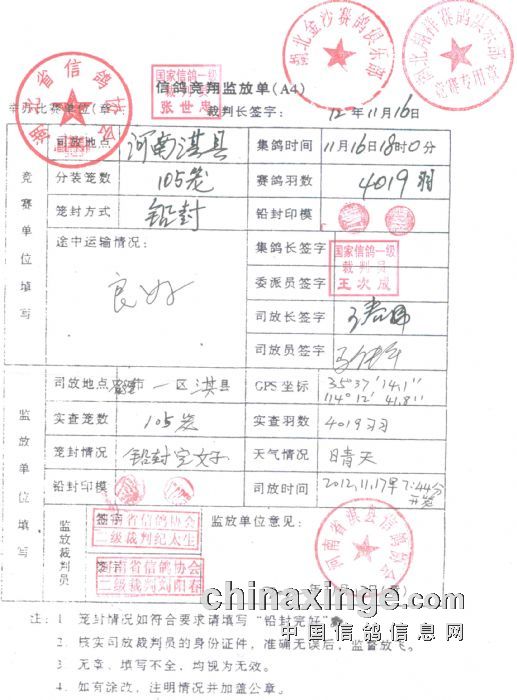 湖北金沙赛鸽俱乐部
竞赛专用章
湖北省信鸽协会
国家信鸽一级
张世忠
信鸽竞翔监放单(A4)
裁判长签字:
12年11月16日
竞赛单位填写
司放地点
河南淇县
集鸽时间
11月16日18时0分
分装笼数
105笼
赛鸽羽数
4019羽
笼封方式
铅封
铅封印模
途中运输情况:
良好
集鸽长签字
国家信鸽一级
裁判员
王次成
委派员签字
司放长签字
司放员签字
监放单位填写
司放地点
市一区淇县
GPS坐标
35°37′14.1″
114°12′41.8″
实查笼数
105笼
实查羽数
4019羽
笼封情况
铅封完好
天气情况
晴天
铅封印模
司放时间
2012.11.17早7:44分
开笼
监放裁判员
签字
河南省信鸽协会
二级裁判纪太生
签字
河南省信鸽协会
二级裁判刘阳春
监放单位意见:
河南省淇县信鸽协会
注:1 笼封情况如符合要求请填写“铅封完好”
2. 核实司放裁判员的身份证件,准确无误后,监督放飞。
3. 无章、填写不全,均视为无效。
4. 如有涂改,注明情况并加盖公章。
chinaxinge.com
中国信鸽信息网